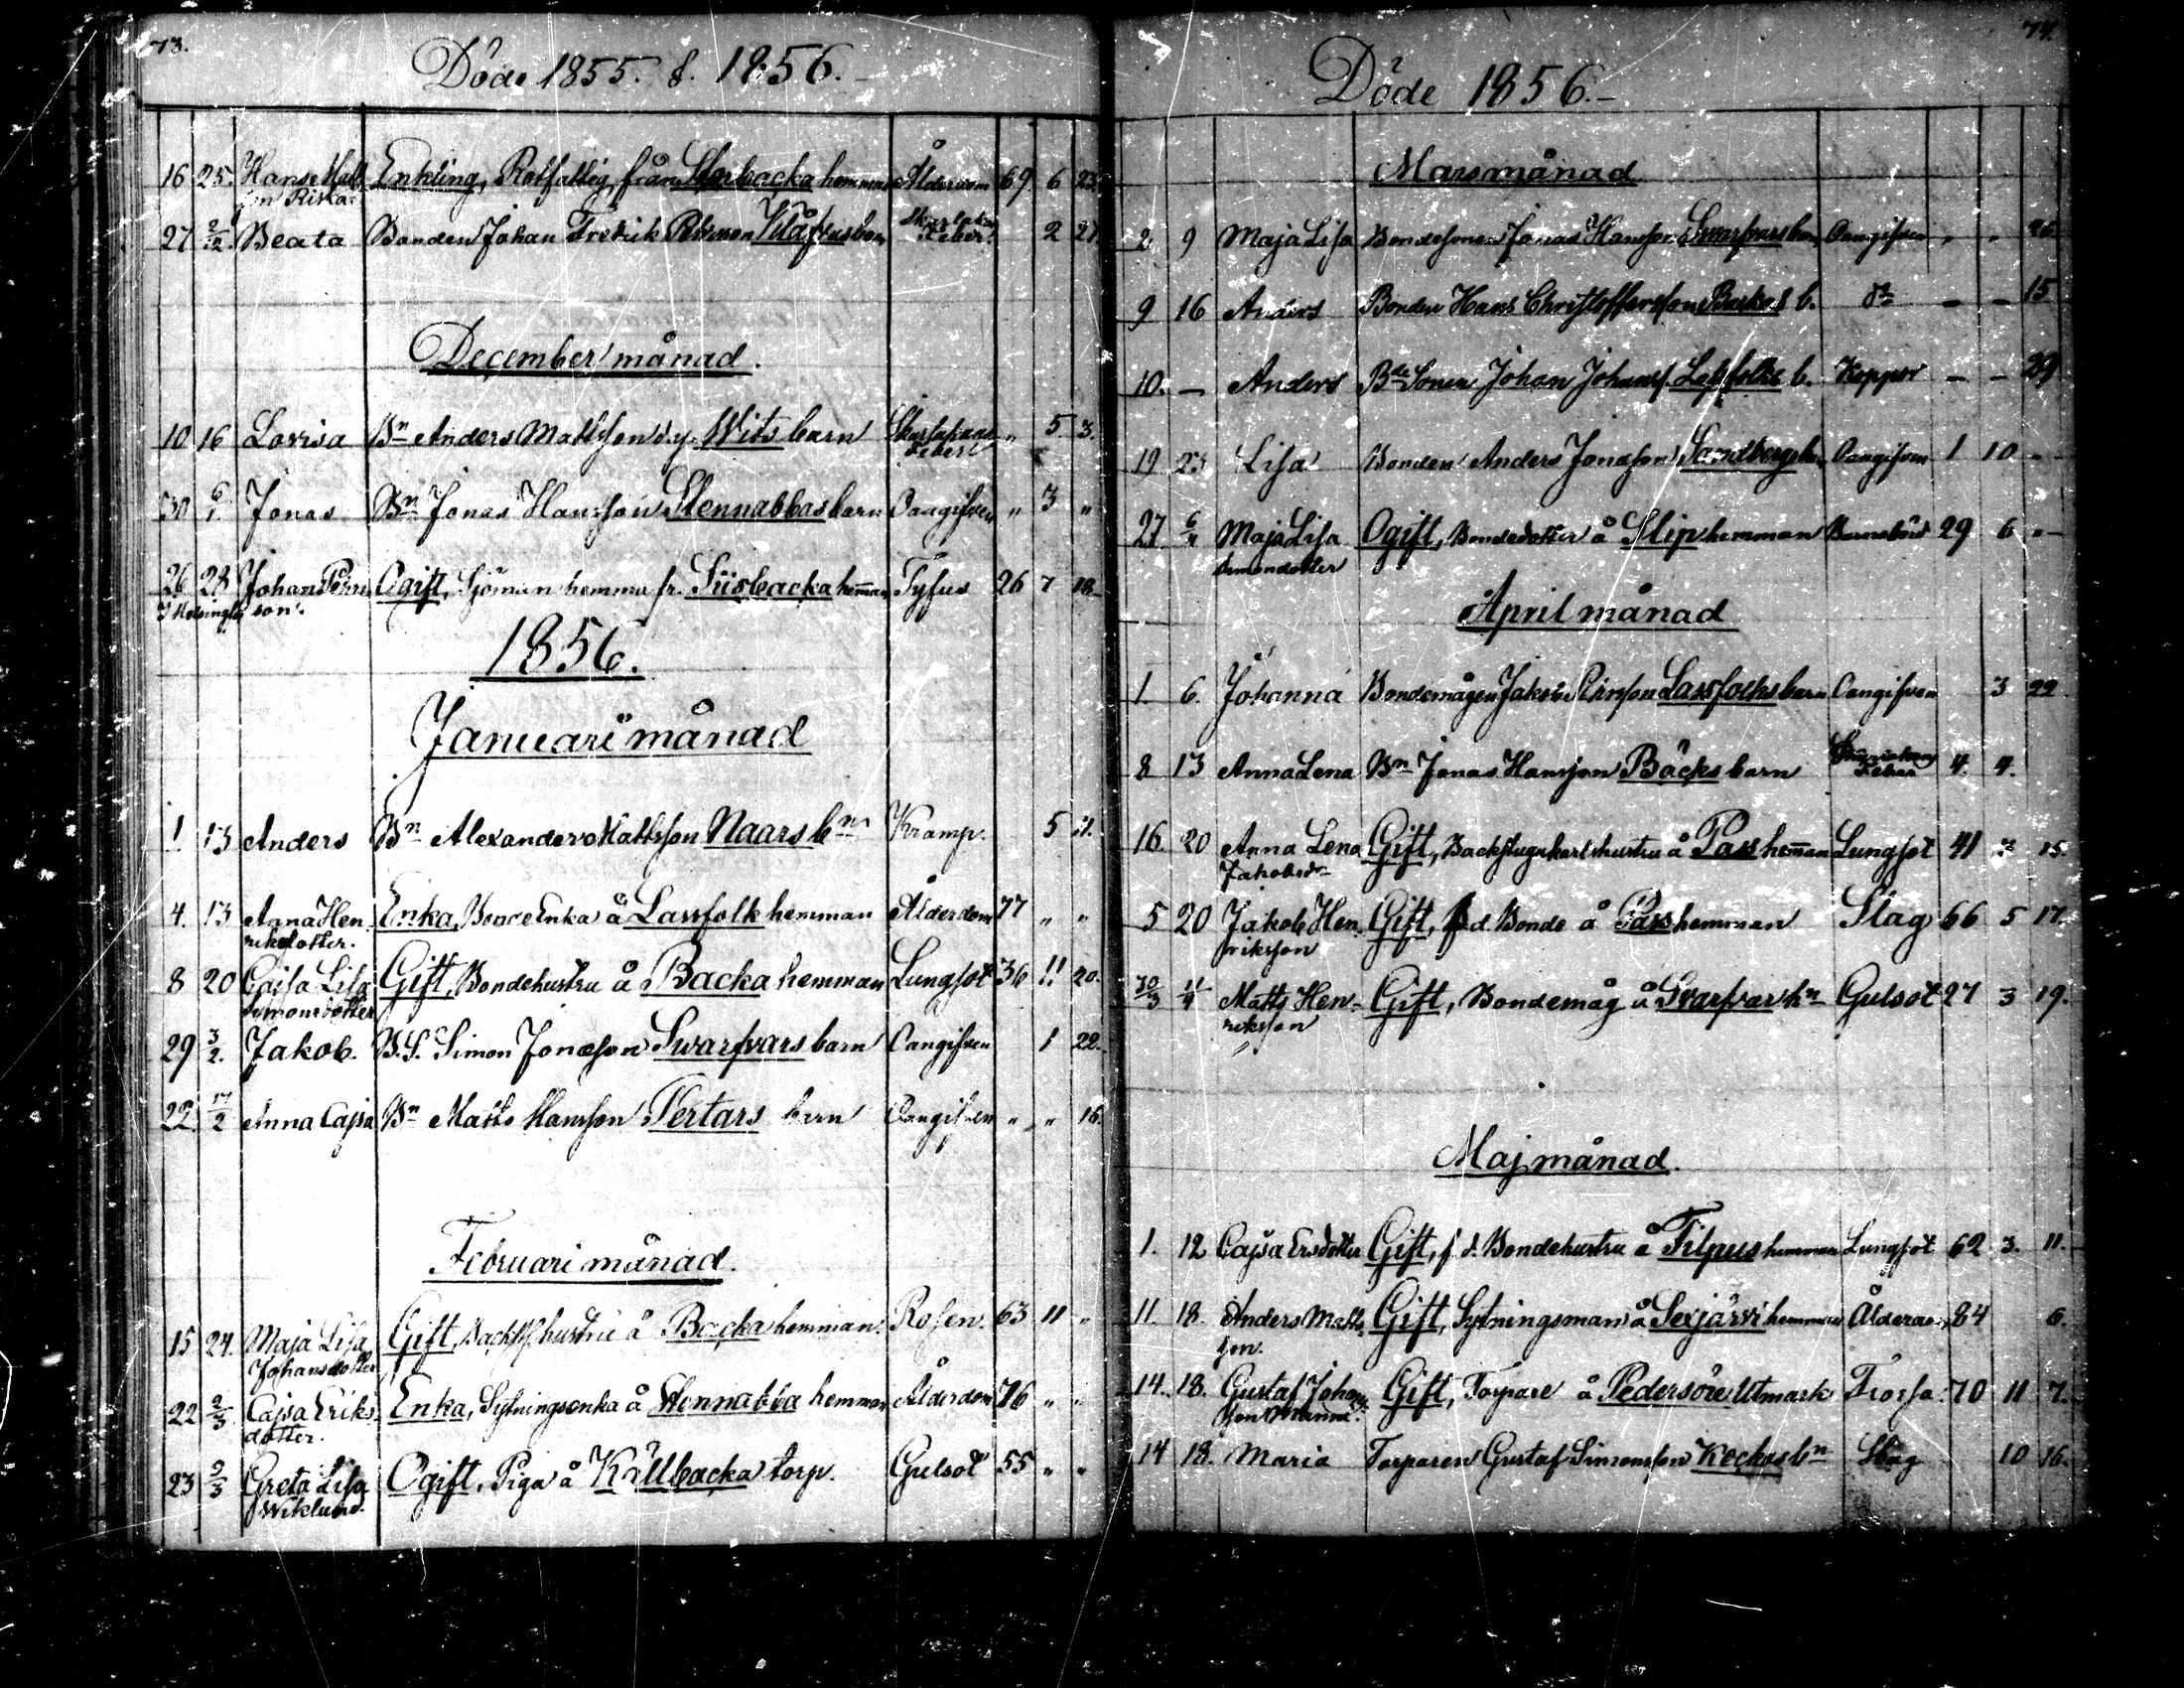 73.
Döde 1855. & 1856.
16 25. Hans Matts Enkling, Rotfattig, från Storbacka hemman Ålderdom 69 6 23
son Riska.
27 2/12 Beata Bonden Johan Fredrik barn Skarlakans Feber. 2 27
December månad.
10 16 Lovisa Bn Anders Mattsson d.y. Wits barn Skarlakans Feber " 5. 3.
30 6/1. Jonas Bn Jonas Hansson Stennabbas barn Oangifven " 3 "
26 28 Johan Pehrs Ogift, Sjöman hemma fr. Siisbacka heman Tyfus 26 7 18
I Helsingfs son.
1856.
Januari månad
1 13 Anders Bn Alexander Mattsson Naars bn Kramp. 5 11.
4. 13 Anna Hen Enka, Bonde Enka å Lassfolk hemman Ålderdom 77 " "
riksdotter.
8 20 Cajsa Lisa Gift, Bondehustru å Backa hemman Lungsot 36 11 20.
Simonsdotter
29 3/2. Jakob. B.S. Simon Jonasson Swarfvars barn Oangifven 1 22.
22. 17/2 Anna Cajsa Bn Matts Hansson Pertars barn Oangifven " " 16.
Februari månad.
15 24. Maja Lisa Gift, Backst.hustru å Backa hemman. Rosen. 63 11 "
Johansdotter
22 2/3 Cajsa Eriks Enka, Sytningsenka å Stennabba hemman Ålderdom 76 " "
dotter.
23 9/3 Greta Lisa Ogift, Piga å Källbacka torp. Gulsot 55 " "
Wiklund.
74.
Döde 1856.-
Marsmånad
2 9 Maja Lisa Bondesonen Jonas Hansson Swarfvars barn Oangifven " " 26
9 16 Anders Bonden Hans Christoffersson b. do - - 15
10. - Anders Bde Sonen Johan Johanss. Lassfolks b. Koppor - - 29
19 23 Lisa Bonden Anders Jonasson Sandbergs b. Oangifven 1 10 -
27 6/4 Maja Lisa Ogift, Bondedotter å Slip hemman Barnsbörd 29 6 "-
Simonsdotter
April månad
1. 6. Johanna Bondemågen Jakob Lassfolks barn Oangifven 3 22
8 13 Anna Lena Bn Jonas Hansson Bäcks barn Feber 4. 4.
16. 20 Anna Lena Gift, Backstugukarlshustru å Pass heman Lungsot 41 15.
Jakobsdr
5 20 Jakob Hen Gift, f d. Bonde å Pärs hemman Slag 66 5 17.
riksson
30/3 11/4 Matts Hen- Gift, Bondemåg å Svarfvar hn Gulsot 27 3 19.
riksson
Maj månad.
1. 12 Cajsa Ersdotter Gift, f. d. Bondehustru å Filpus hemman Lungsot 62 3. 11.
11. 18. Anders Matts Gift, Sytningsman å Sexjärvi hemman Ålderdom 84 6.
son.
14. 18. Gustaf Johans Gift, Torpare å Pedersöre Utmark Frossa. 70 11 7.
son
14 18. Maria Torparen Gustaf Simonsson Keckas bn Slag 10 16.